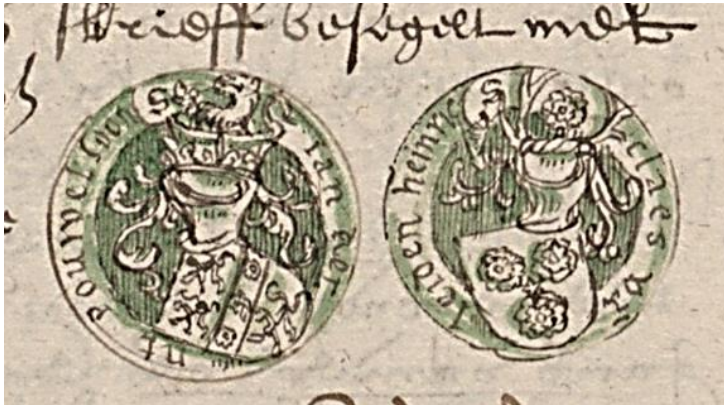 brieff besegelt mdt
S ian her nt pouwelsoen
S claes ra leiden heinric